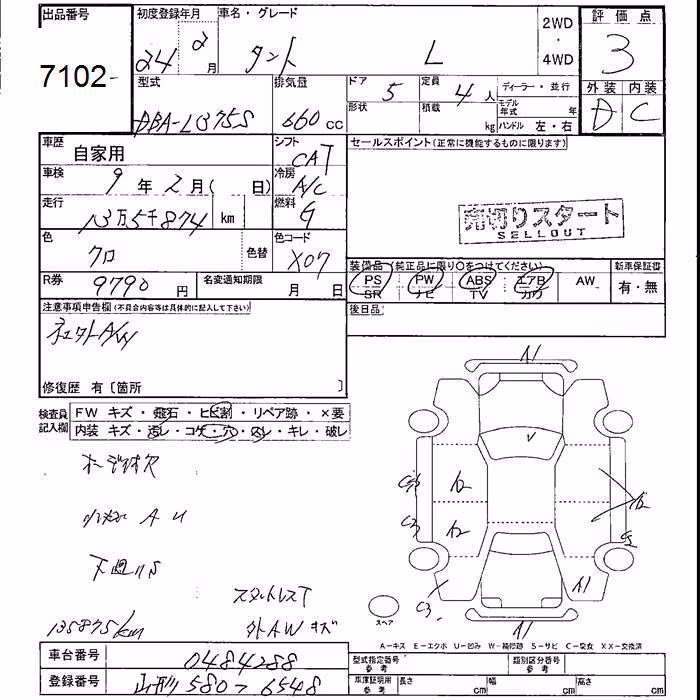 出品番号 初度登録年月 車名・グレード 2WD ・ 4WD 評価点
7102 24年2月 タント L 3
型式 排気量 ドア 5 定員 4人 ディーラー・並行 外装 内装
DBA-L375S 660cc 形状 積載 kg モデル年式 年 ハンドル 左・右 D C
車歴 自家用 シフト CAT セールスポイント(正常に機能するものに限ります)
車検 9年2月( 日) 冷房 A/C
走行 13万5千874 km 燃料 G 売切りスタート
SELLOUT
色 クロ 色替 色コード X07
装備品(純正品に限り○をつけてください) 新車保証書
R券 9790円 名変通知期限 月 日 PS PW ABS エアB AW 有・無
SR ナビ TV カワ
注意事項申告欄(不具合内容等は具体的に記入して下さい) 後日品
修復歴 有〔箇所 〕
検査員記入欄 FW キズ・飛石・ヒビ割・リペア跡・×要
内装 キズ・汚レ・コゲ・穴・スレ・キレ・破レ
A1
V
A2
A2
A1
C3
A1
スペア
スタットレスT
135875km 外AWキズ
A-キズ E-エクボ U-凹み W-補修跡 S-サビ C-腐食 XX-交換済
車台番号 0484288 型式指定番号 参考 類別区分番号 参考
登録番号 山形 580 ラ 6548 車庫証明用 参考 長さ cm 幅 cm 高さ cm